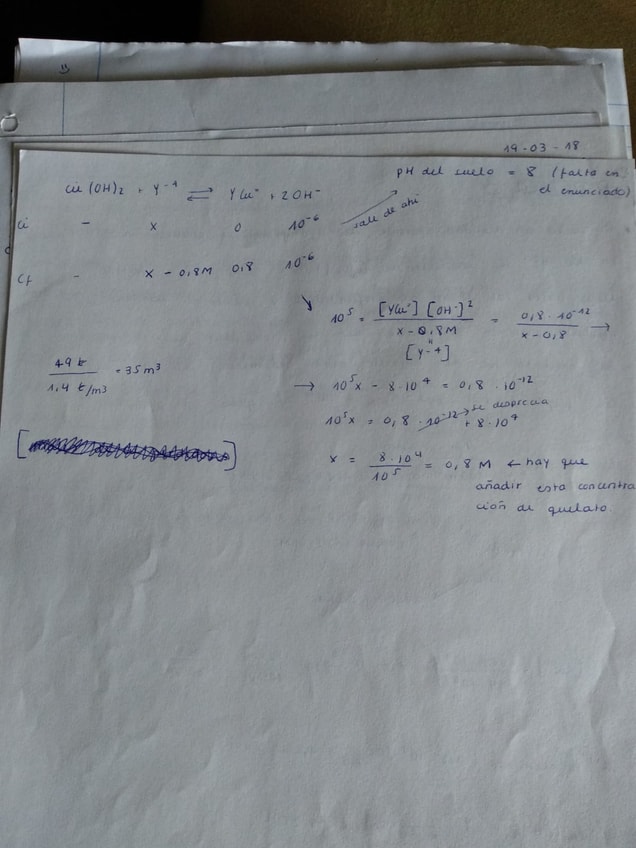 19-03-18
pH del suelo = 8 (falta en el enunciado)
Cu(OH)₂ + Y⁻⁴ ⇌ YCu⁼ + 2OH⁻
Ci - x 0 10⁻⁶
sale de ahí
Cf - x - 0,8M 0,8 10⁻⁶
10⁵ = [YCu⁼][OH⁻]² / x - 0,8M = 0,8 · 10⁻¹² / x - 0,8 →
[Y⁻⁴]
49 t / 1,4 t/m³ = 35 m³
→ 10⁵x - 8·10⁴ = 0,8 · 10⁻¹²
se desprecia
10⁵x = 0,8 · 10⁻¹² + 8·10⁴
x = 8·10⁴ / 10⁵ = 0,8 M ← hay que
añadir esta concentra
ción de quelato.